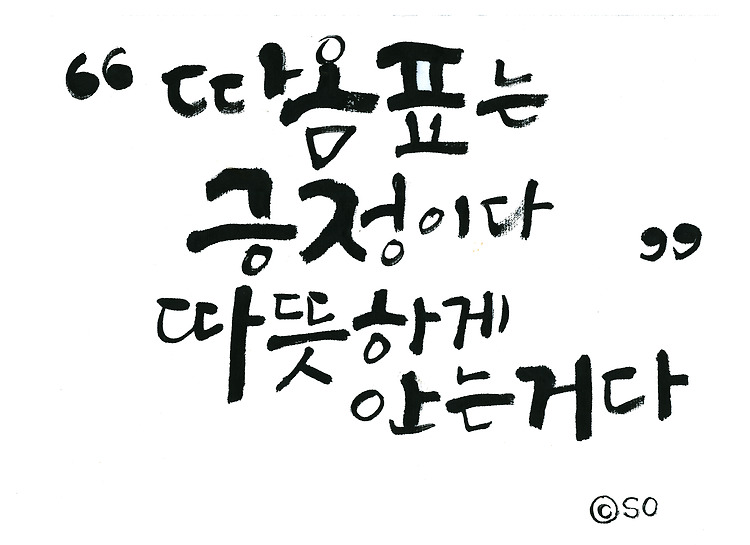 “따옴표는
긍정이다 ”
따뜻하게
안는거다
©SO